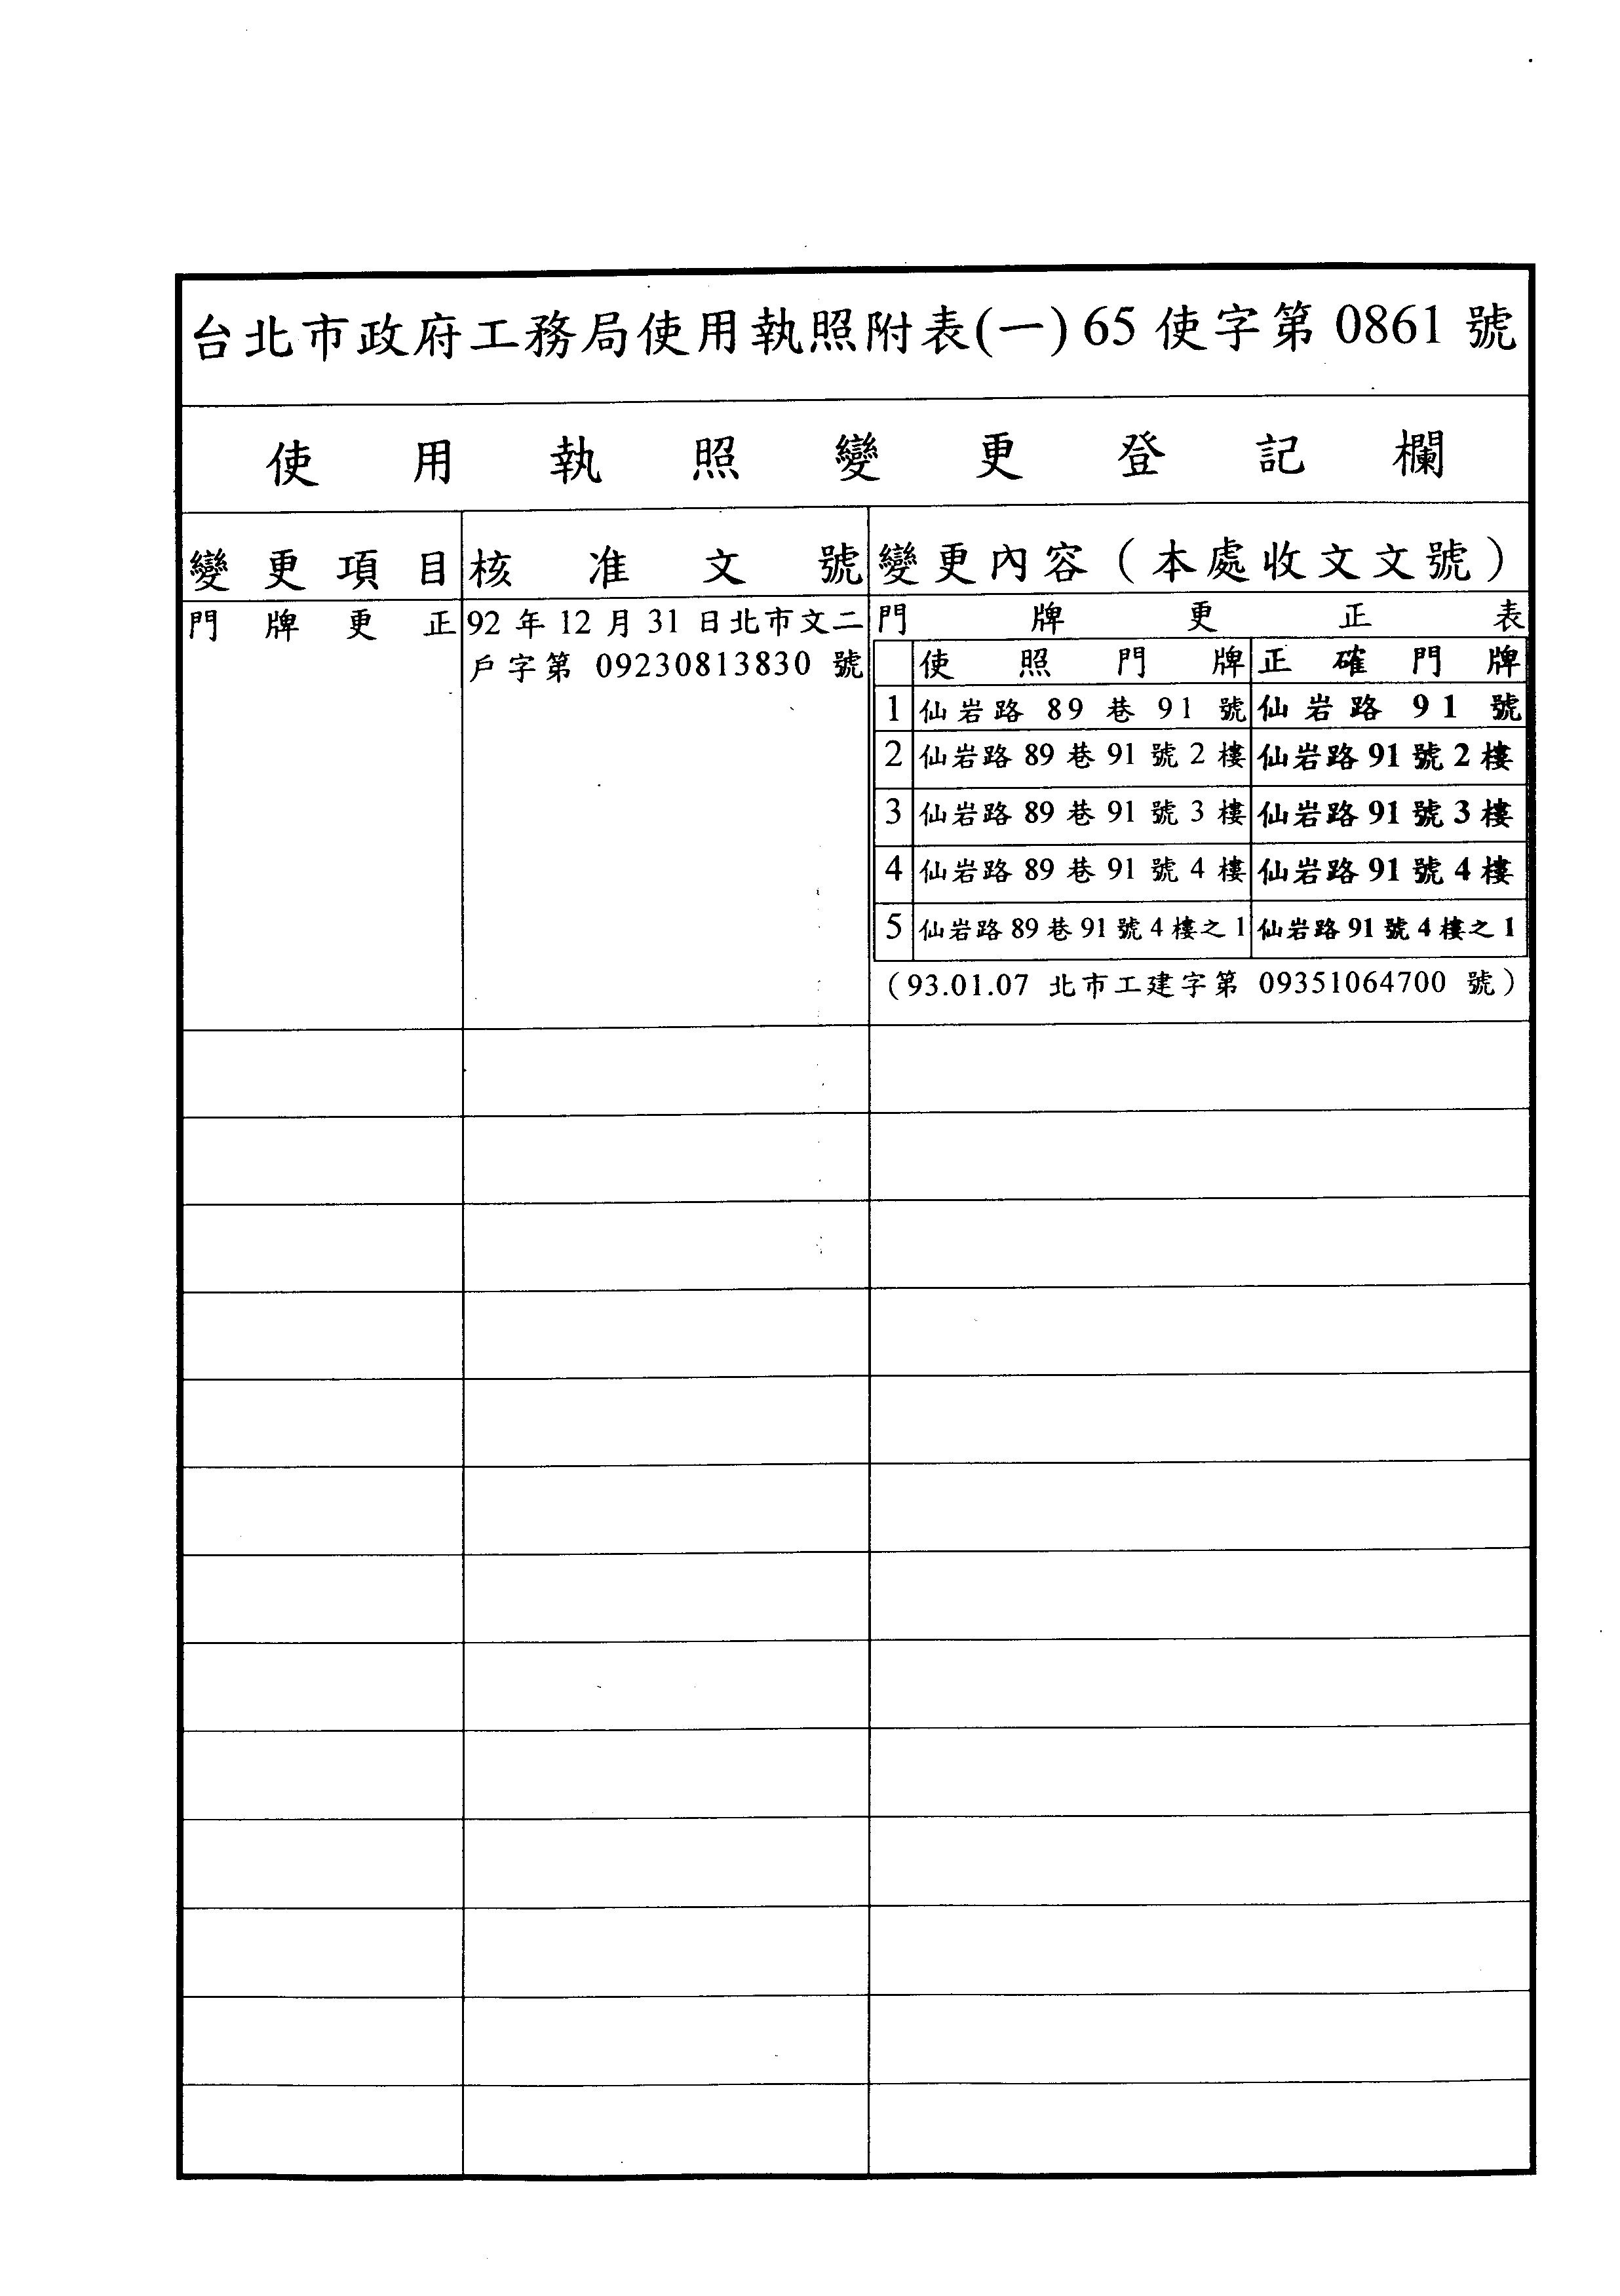 台北市政府工務局使用執照附表(一) 65 使字第 0861 號
使用執照變更登記欄
變更項目 核准文號 變更內容（本處收文文號）
門牌更正 92 年 12 月 31 日北市文二 門牌更正表
戶字第 09230813830 號
使照門牌 正確門牌
1 仙岩路 89 巷 91 號 仙岩路 91 號
2 仙岩路 89 巷 91 號 2 樓 仙岩路 91 號 2 樓
3 仙岩路 89 巷 91 號 3 樓 仙岩路 91 號 3 樓
4 仙岩路 89 巷 91 號 4 樓 仙岩路 91 號 4 樓
5 仙岩路 89 巷 91 號 4 樓之 1 仙岩路 91 號 4 樓之 1
（93.01.07 北市工建字第 09351064700 號）